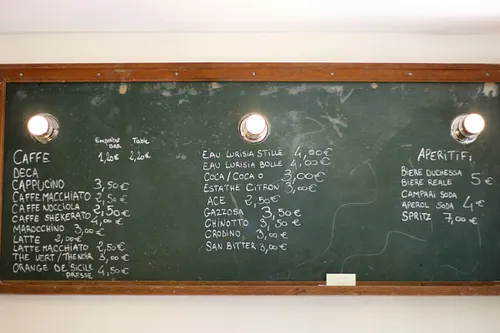 BAR Table
CAFFE 1,20€ 2,20€
DECA
CAPPUCINO 3,50€
CAFFE MACCHIATO 2,50€
CAFFE NOCCIOLA 2,50€
CAFFE SHEKERATO 4,00€
MAROCCHINO 3,00€
LATTE 2,00€
LATTE MACCHIATO 2,50€
THE VERT/THE NOIR 3,00€
ORANGE DE SICILE 4,50€
PRESSE
EAU LURISIA STILLE 4,00€
EAU LURISIA BOLLE 4,00€
COCA/COCA 0 3,00€
ESTATHE CITRON 3,00€
ACE 2,50€
GAZZOSA 3,50€
CHINOTTO 3,50€
CRODINO 3,00€
SAN BITTER 3,00€
APERITIF:
BIERE DUCHESSA
BIERE REALE 5€
CAMPARI SODA
APEROL SODA 4€
SPRITZ 7,00€